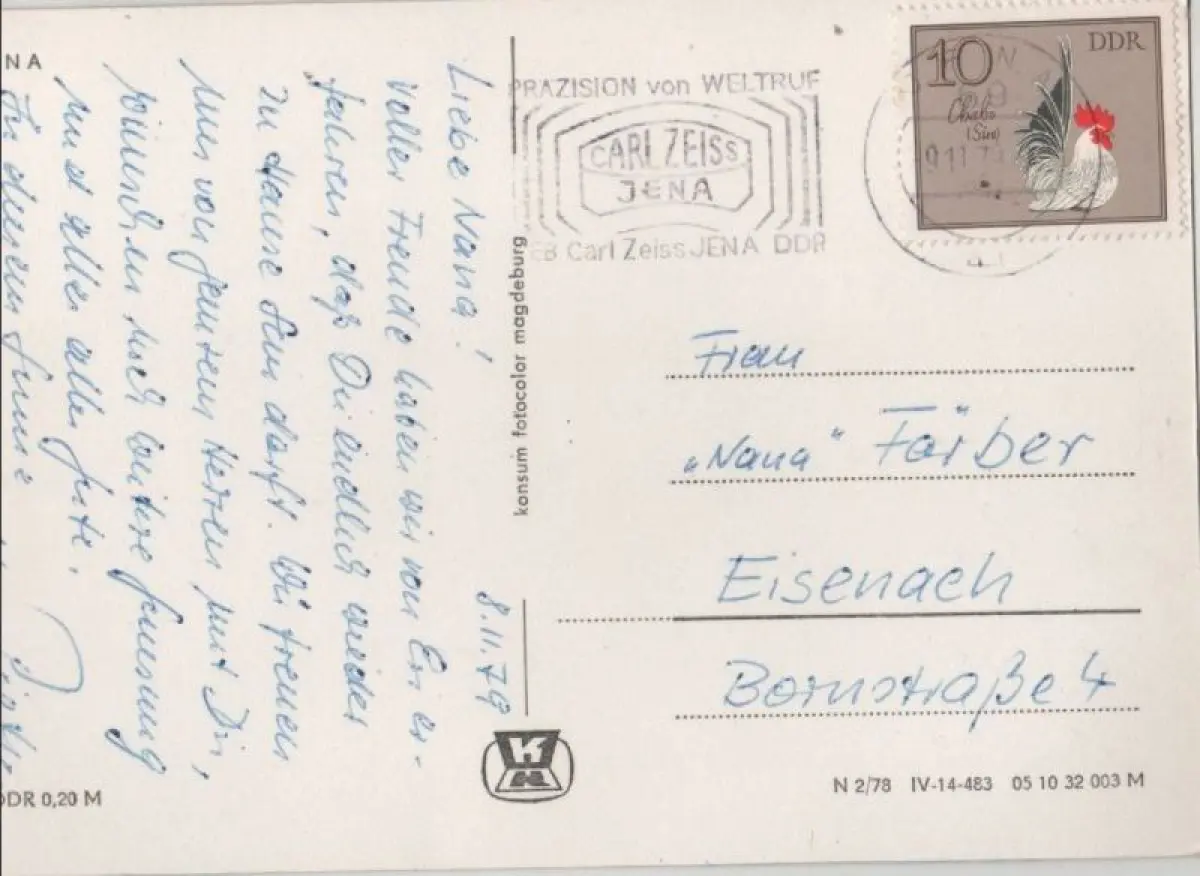 NA
Liebe Nana!
8.11.79
Voller Freude haben wir von Evi er-
fahren, daß Du endlich wieder
zu Hause sein darfst. Wir freuen
uns von ganzem Herzen mit Dir,
wünschen noch weitere Genesung
und alles alles Gute.
In diesem Sinne
DDR 0,20 M
konsum fotocolor magdeburg
PRÄZISION von WELTRUF
CARL ZEISS
JENA
EB Carl Zeiss JENA DDR
10
DDR
Chabo
9.11.79
Frau
"Nana" Färber
Eisenach
Bornstraße 4
N 2/78 IV-14-483 05 10 32 003 M